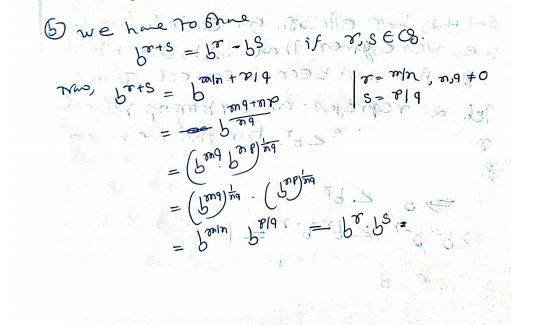 (b) we have to prove
b^{r+s} = b^r - b^s if r, s ∈ Q.
Now, b^{r+s} = b^{m/n + p/q} | r = m/n, n, q ≠ 0
s = p/q
= b^{\frac{mq+np}{nq}}
= (b^{mq} b^{np})^{\frac{1}{nq}}
= (b^{mq})^{\frac{1}{nq}} . (b^{np})^{\frac{1}{nq}}
= b^{m/n} b^{p/q} = b^r . b^s =